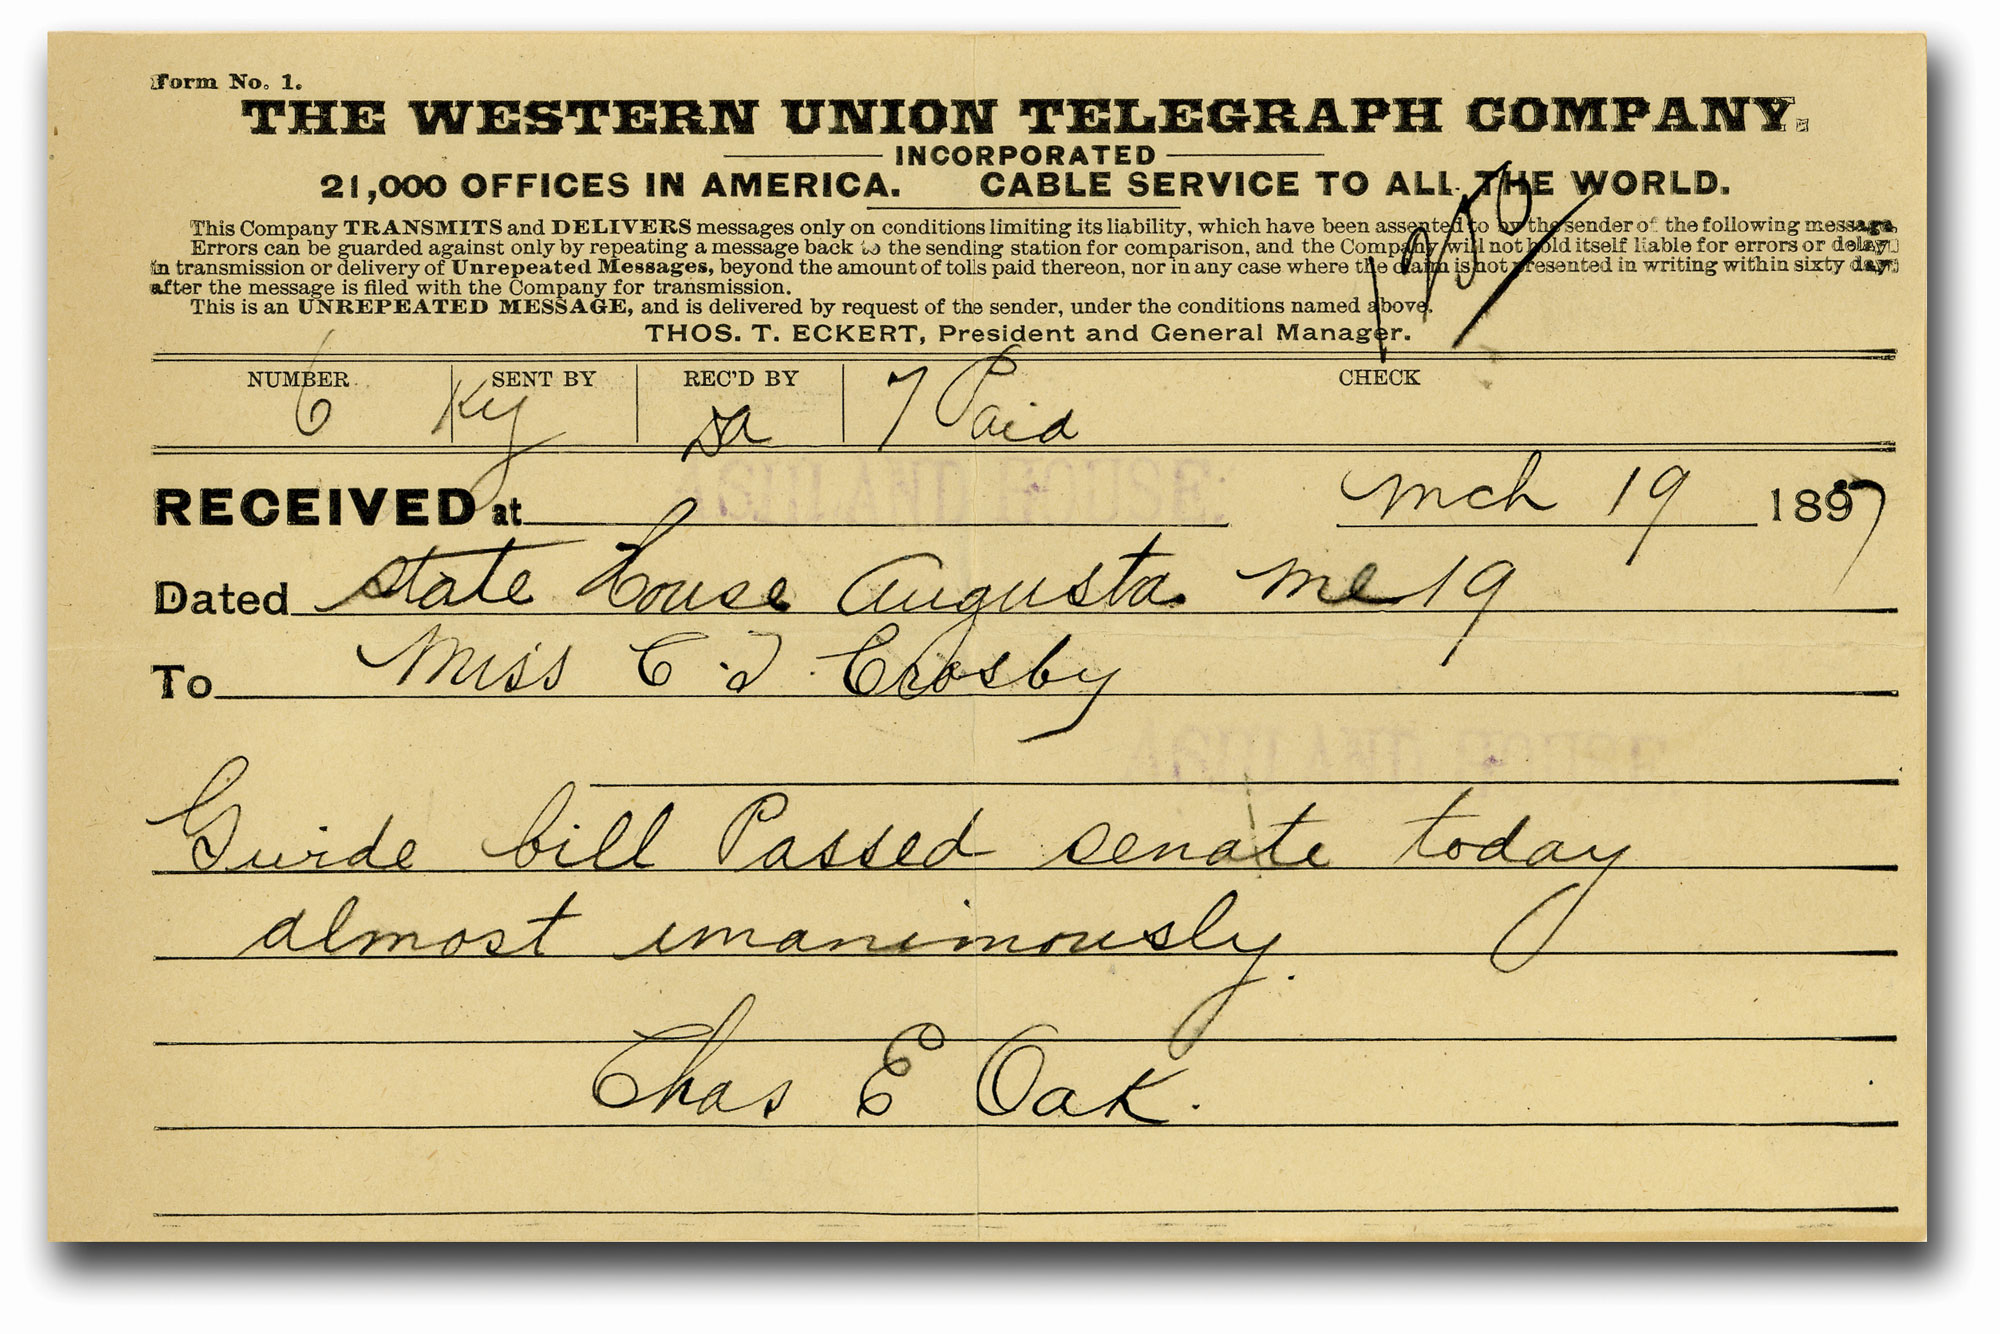 Form No. 1.
THE WESTERN UNION TELEGRAPH COMPANY.
INCORPORATED
21,000 OFFICES IN AMERICA. CABLE SERVICE TO ALL THE WORLD.
This Company TRANSMITS and DELIVERS messages only on conditions limiting its liability, which have been assented to by the sender of the following message.
Errors can be guarded against only by repeating a message back to the sending station for comparison, and the Company will not hold itself liable for errors or delays
in transmission or delivery of Unrepeated Messages, beyond the amount of tolls paid thereon, nor in any case where the claim is not presented in writing within sixty days
after the message is filed with the Company for transmission.
This is an UNREPEATED MESSAGE, and is delivered by request of the sender, under the conditions named above.
THOS. T. ECKERT, President and General Manager.
NUMBER SENT BY REC'D BY CHECK
6 Ky Da 7 Paid
RECEIVED at Mch 19 1897
ASHLAND HOUSE.
Dated State House Augusta Me 19
To Miss C. J. Crosby
ASHLAND HOUSE
Guide bill Passed senate today
almost unanimously.
Chas E Oak.